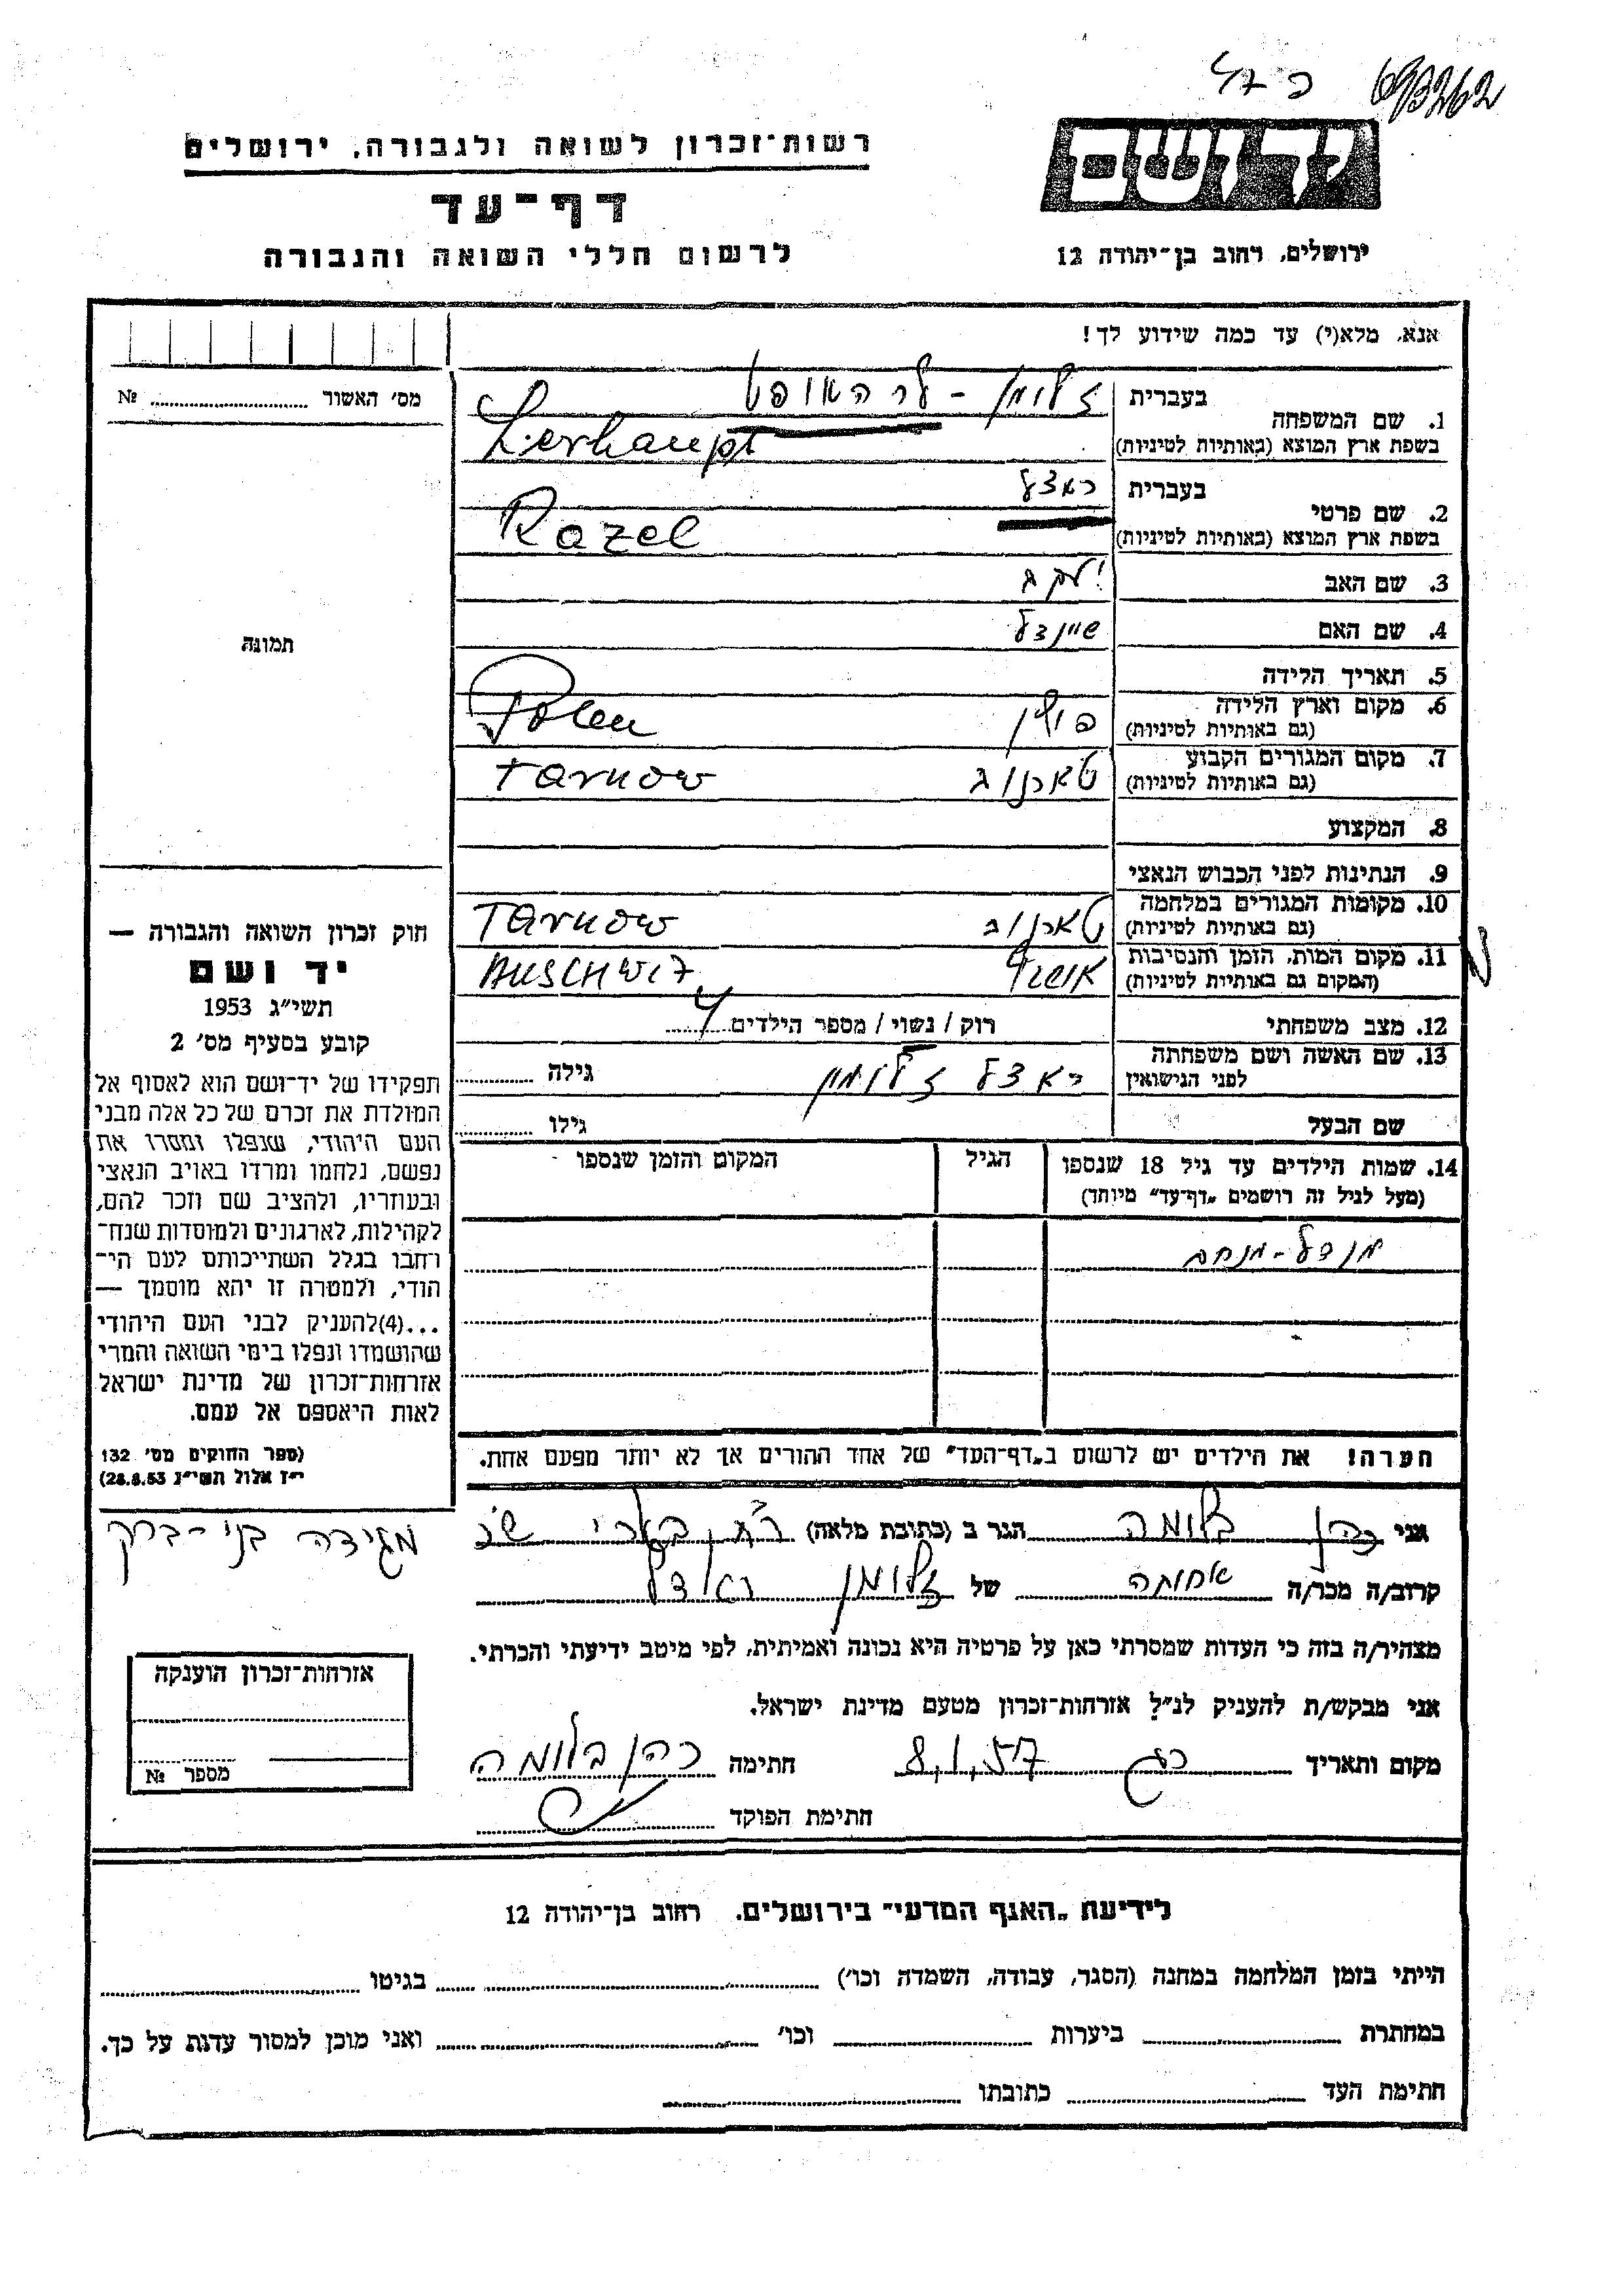 693262
רשות־זכרון לשואה ולגבורה, ירושלים
דף־עד
לרשום חללי השואה והגבורה
ירושלים, רחוב בן־יהודה 12
אנא, מלא(י) עד כמה שידוע לך!
מס׳ האשור № 
1. שם המשפחה בעברית זלומן - לר האופט
בשפת ארץ המוצא (באותיות לטיניות) Lerhaupt
2. שם פרטי בעברית ראצל
בשפת ארץ המוצא (באותיות לטיניות) Razel
3. שם האב יעקב
4. שם האם שיינדל
5. תאריך הלידה
6. מקום וארץ הלידה פולין Polen
(גם באותיות לטיניות)
7. מקום המגורים הקבוע טארנוב Tarnow
(גם באותיות לטיניות)
8. המקצוע
9. הנתינות לפני הכבוש הנאצי
10. מקומות המגורים במלחמה טארנוב Tarnow
(גם באותיות לטיניות)
11. מקום המות, הזמן והנסיבות AUSCHWITZ
(המקום גם באותיות לטיניות)
12. מצב משפחתי רוק / נשוי / מספר הילדים 4
13. שם האשה ושם משפחתה ראצל זלומן גילה
לפני הנישואין
שם הבעל גילו
14. שמות הילדים עד גיל 18 שנספו הגיל המקום והזמן שנספו
(מעל לגיל זה רושמים „דף־עד״ מיוחד)
מנדל - מנחם
תמונה
חוק זכרון השואה והגבורה —
יד ושם
תשי״ג 1953
קובע בסעיף מס׳ 2
תפקידו של יד־ושם הוא לאסוף אל
המולדת את זכרם של כל אלה מבני
העם היהודי, שנפלו ומסרו את
נפשם, נלחמו ומרדו באויב הנאצי
ובעוזריו, ולהציב שם וזכר להם,
לקהילות, לארגונים ולמוסדות שנח־
רבו בגלל השתייכותם לעם הי־
הודי, ולמטרה זו יהא מוסמך —
...(4)להעניק לבני העם היהודי
שהושמדו ונפלו בימי השואה והמרי
אזרחות־זכרון של מדינת ישראל
לאות היאספם אל עמם.
(ספר החוקים מס׳ 132
י״ז אלול תשי״ג 28.8.53)
הערה! את הילדים יש לרשום ב„דף־העד״ של אחד ההורים אך לא יותר מפעם אחת.
אני כהן בלומה הגר ב (כתובת מלאה)
בני-ברק
קרוב/ה מכר/ה אחותה של זלומן ראצל
מצהיר/ה בזה כי העדות שמסרתי כאן על פרטיה היא נכונה ואמיתית, לפי מיטב ידיעתי והכרתי.
אני מבקש/ת להעניק לנ״ל אזרחות־זכרון מטעם מדינת ישראל.
מקום ותאריך 8.1.57 חתימה כהן בלומה
חתימת הפוקד
אזרחות־זכרון הוענקה
מספר №
לידיעת „האגף המדעי״ בירושלים, רחוב בן־יהודה 12
הייתי בזמן המלחמה במחנה (הסגר, עבודה, השמדה וכו׳) בגיטו
במחתרת ביערות וכו׳ ואני מוכן למסור עדות על כך.
חתימת העד כתובתו